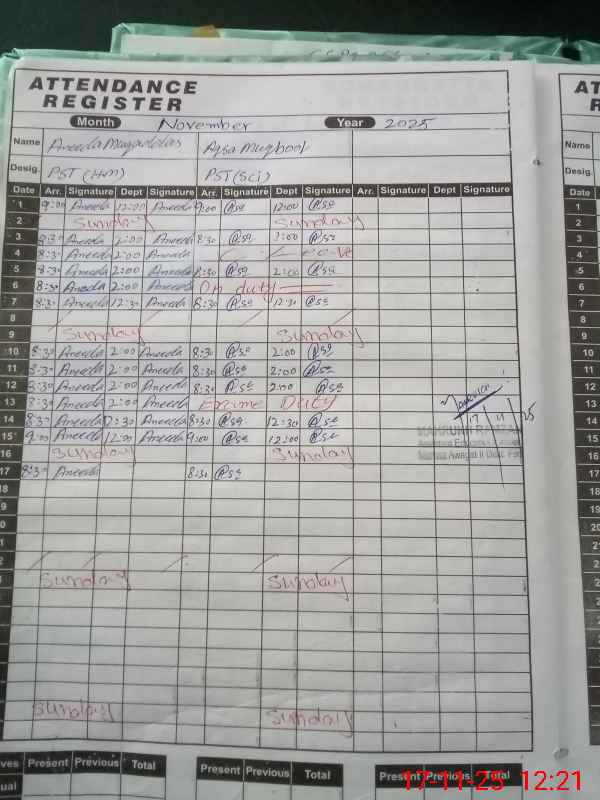 ATTENDANCE
REGISTER
Month November Year 2025
Name Aneeda Muqaddas Aqsa Muqbool
Desig. PST (HM) PST (Sci)
Date Arr. Signature Dept Signature Arr. Signature Dept Signature Arr. Signature Dept Signature
1 9:00 Aneeda 12:00 Aneeda 9:00 12:00
2 Sunday Sunday
3 8:30 Aneeda 2:00 Aneeda 8:30 2:00
4 8:30 Aneeda 2:00 Aneeda
5 8:30 Aneeda 2:00 Aneeda 8:30 2:00
6 8:30 Aneeda 2:00 Aneeda On duty
7 8:30 Aneeda 12:30 Aneeda 8:30 12:30
8
9 Sunday Sunday
10 8:30 Aneeda 2:00 Aneeda 8:30 2:00
11 8:30 Aneeda 2:00 Aneeda 8:30 2:00
12 8:30 Aneeda 2:00 Aneeda 8:30 2:00
13 8:30 Aneeda 2:00 Aneeda Exame Duty
14 8:30 Aneeda 12:30 Aneeda 8:30 12:30
15 9:00 Aneeda 12:00 Aneeda 9:00 12:00
16 Sunday Sunday
17 8:30 Aneeda 8:30
17 11 25
18
Sunday Sunday
Sunday Sunday
Present Previous Total Present Previous Total Present Previous Total
17-11-25 12:21